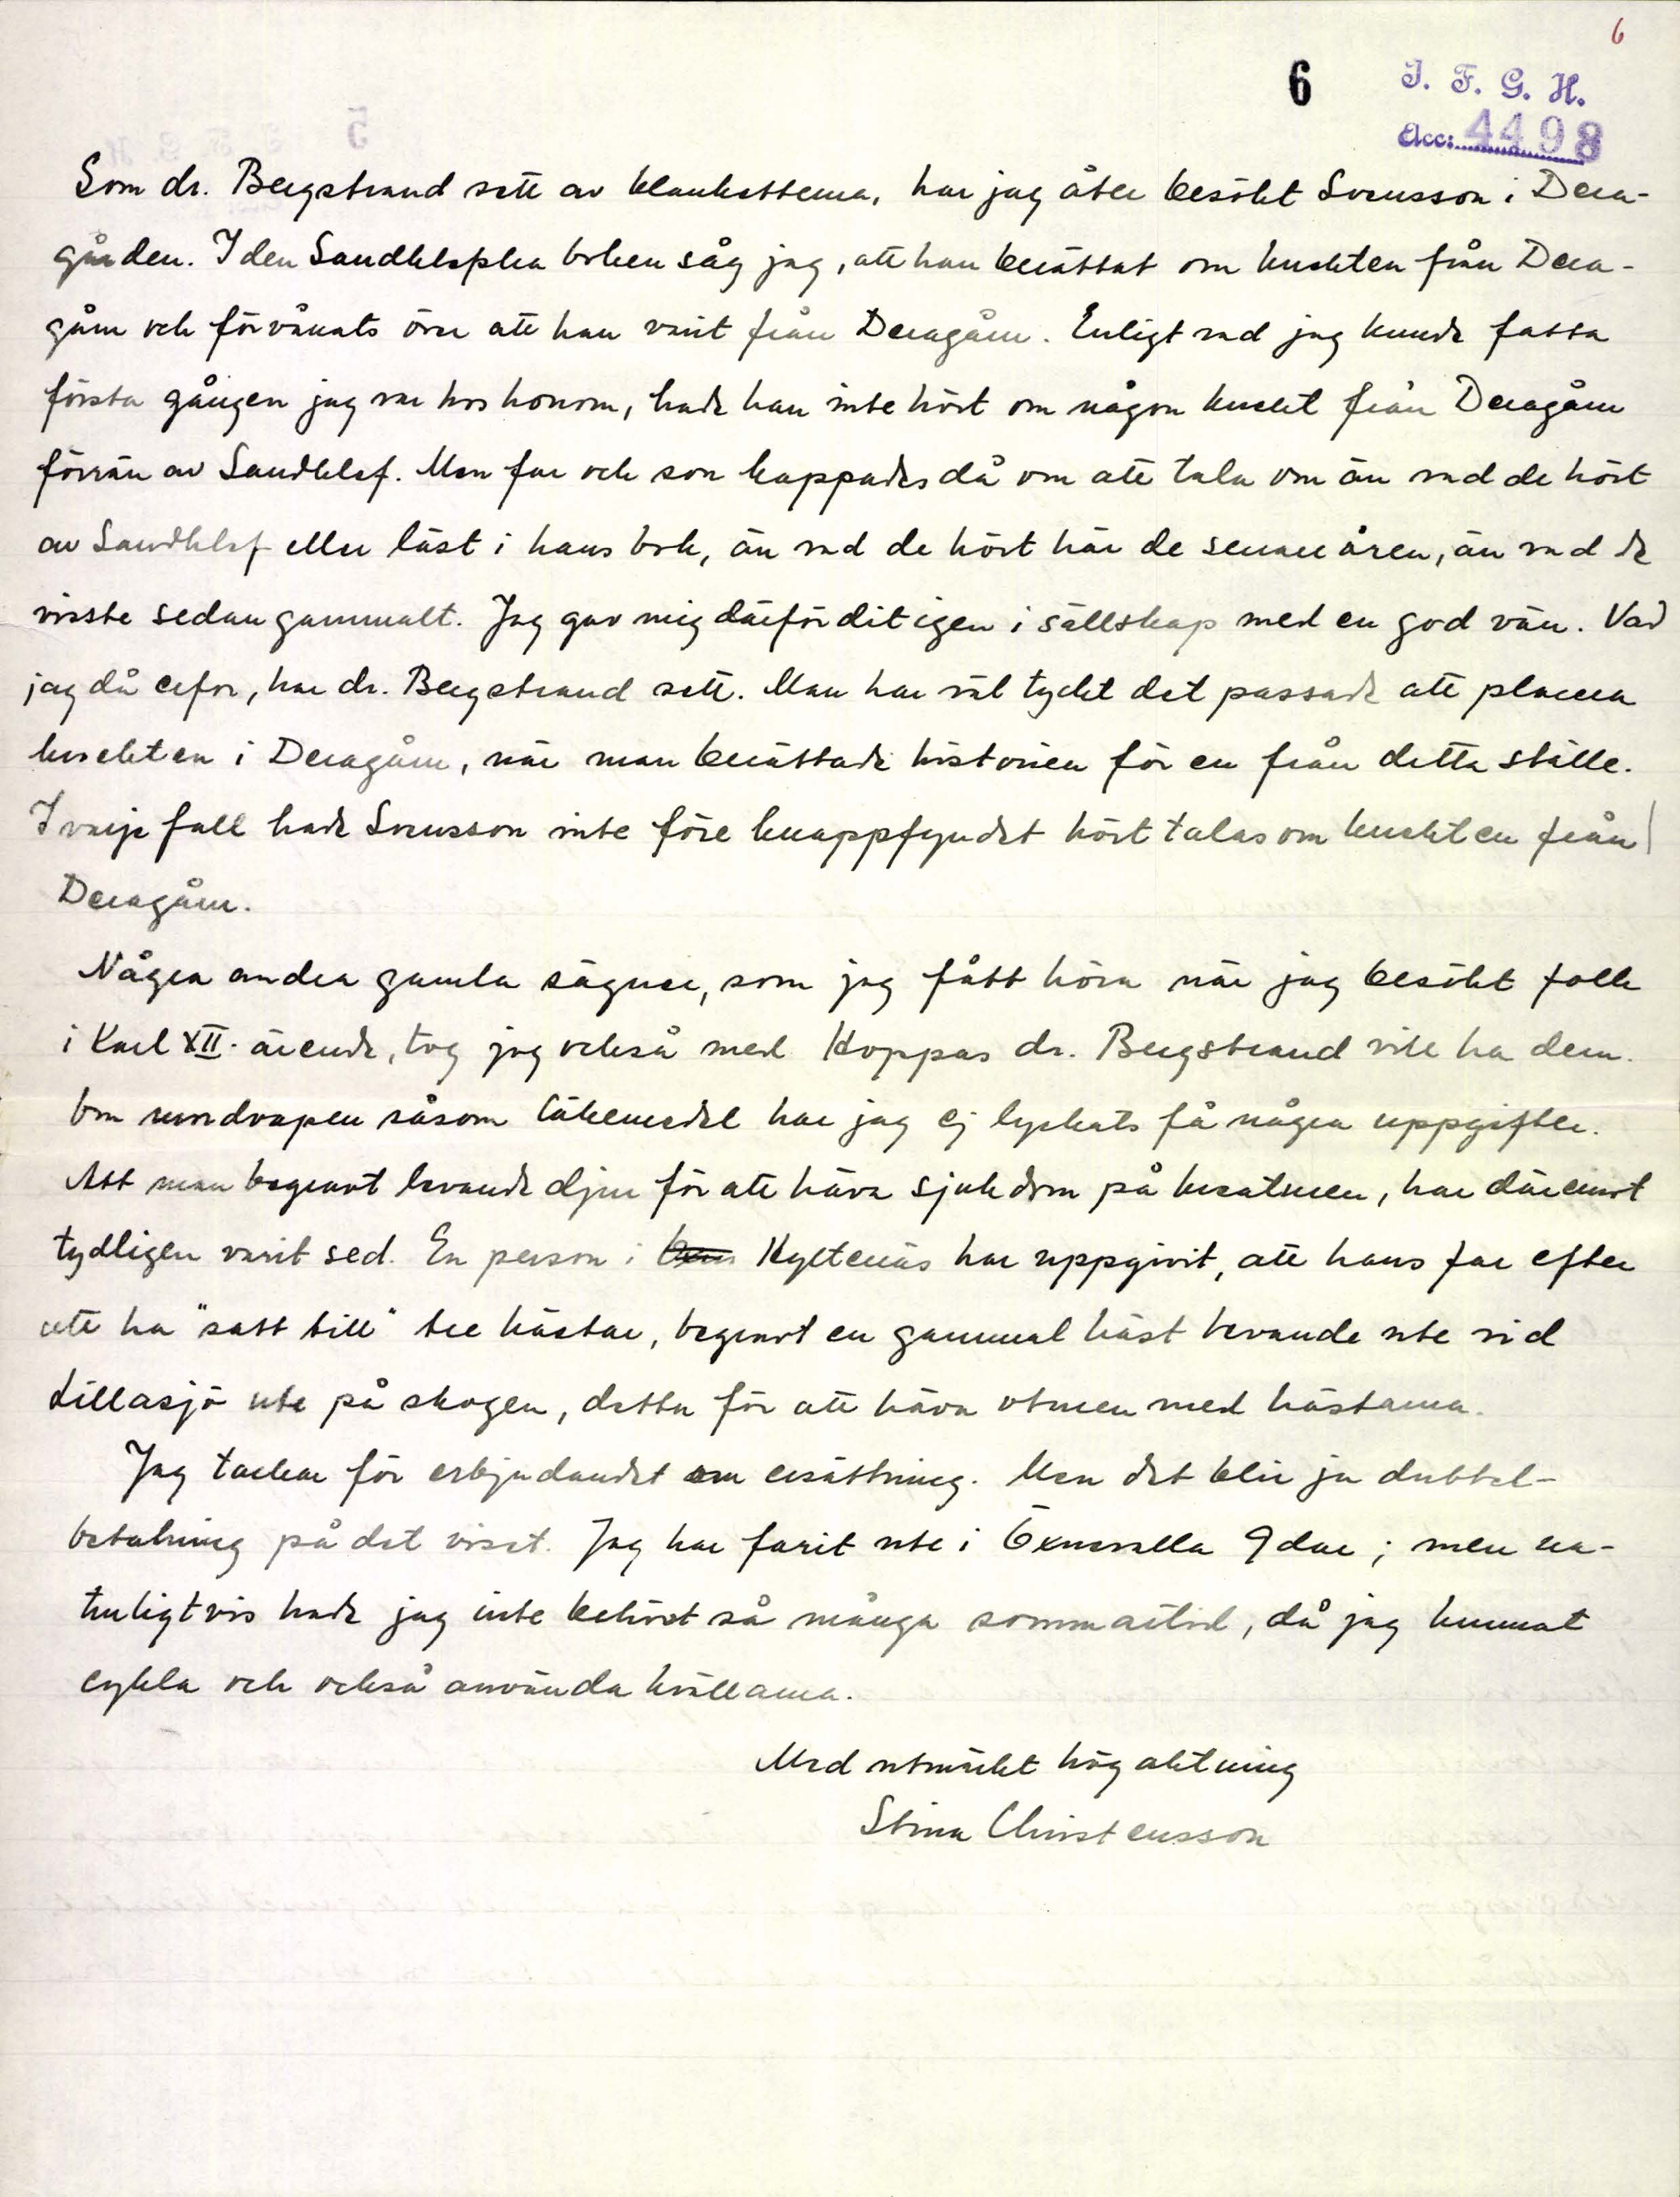 6
6
I. F. G. H.
Acc: 4498
Som dr. Bergstrand sett av blanketterna, har jag åter besökt Svensson i Dera-
gården. I den Sandklefska boken såg jag, att han berättat om knekten från Dera-
gårn och förvånats över att han varit från Deragårn. Enligt vad jag kunde fatta
första gången jag var hos honom, hade han inte hört om någon knekt från Deragårn
förrän av Sandklef. Men far och son kappades då om att tala om än vad de hört
av Sandklef eller läst i hans bok, än vad de hört här de senare åren, än vad de
visste sedan gammalt. Jag gav mig därför dit igen i sällskap med en god vän. Vad
jag då erfor, har dr. Bergstrand sett. Man har väl tyckt det passade att placera
knekten i Deragårn, när man berättade historien för en från detta ställe.
I varje fall hade Svensson inte före knappfyndet hört talas om knekten från
Deragårn.
Några andra gamla sägner, som jag fått höra när jag besökt folk
i Karl XII. ärende, tog jag också med. Hoppas dr. Bergstrand vill ha dem.
Om mordvapen såsom läkemedel har jag ej lyckats få några uppgifter.
Att man begravt levande djur för att häva sjukdom på kreaturen, har däremot
tydligen varit sed. En person i Hyltenäs har uppgivit, att hans far efter
att ha "satt till" tre hästar, begravt en gammal häst levande ute vid
Lillasjö ute på skogen, detta för att häva oturen med hästarna.
Jag tackar för erbjudandet om ersättning. Men det blir ju dubbel-
betalning på det viset. Jag har farit ute i Öxnevalla 9 dar; men na-
turligtvis hade jag inte behövt så många sommartid, då jag kunnat
cykla och också använda kvällarna.
Med utmärkt högaktning
Stina Christensson